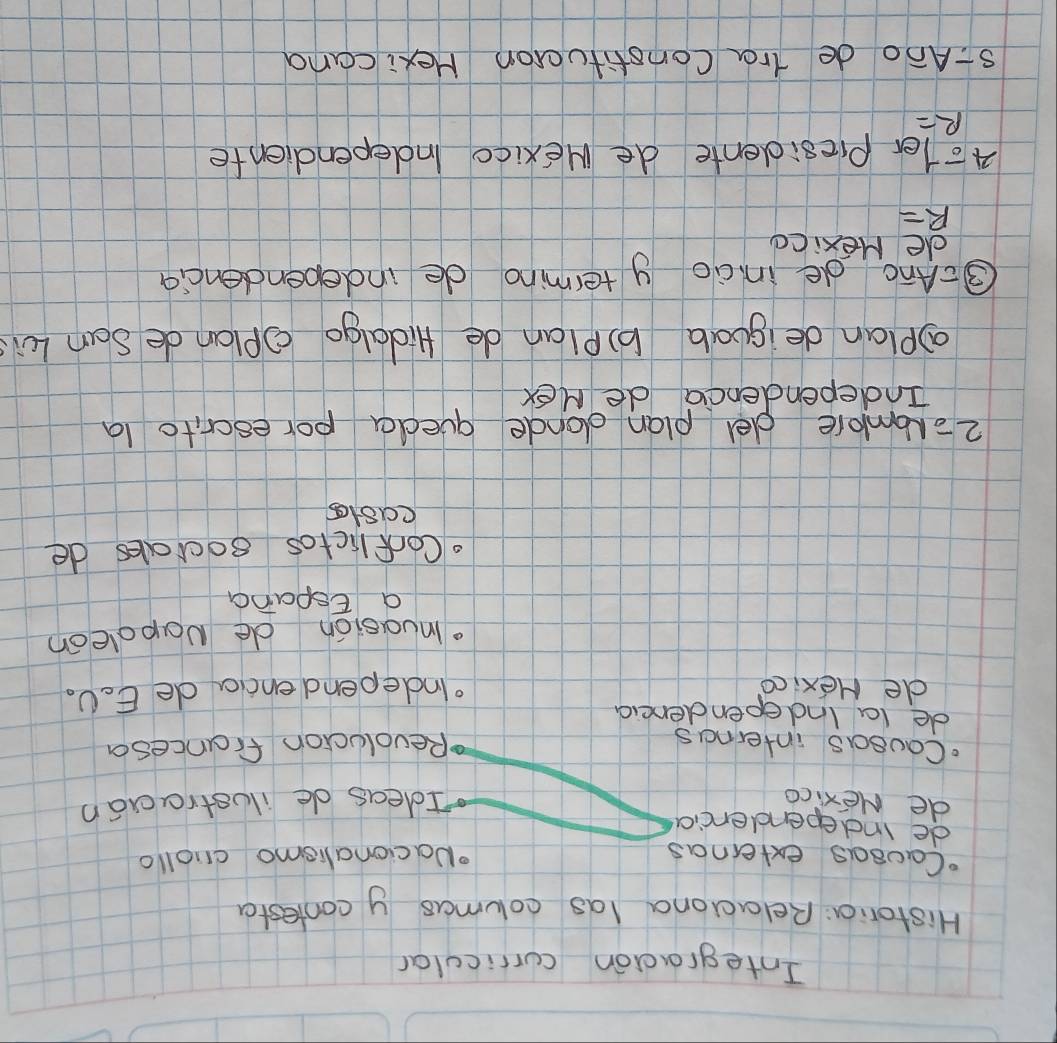 Integración curricular
Historia: Relaciona las columas y contesta
• Causas externas
de independencia
de México
• Causas internas
de la Independencia
de México
• Nacionalismo criollo
• Ideas de ilustración
• Revolución francesa
• Independencia de E.U.
• Invasión de Napoleón
a España
• Conflictos sociales de
casta
2= Nombre del plan donde queda por escrito la
Independencia de Méx
a) Plan de iguala b) Plan de Hidalgo c) Plan de San Luis
3= Año de inicio y termino de independencia
de México
R=
4= 1er Presidente de México Independiente
R=
5= Año de 1ra Constitución Mexicana